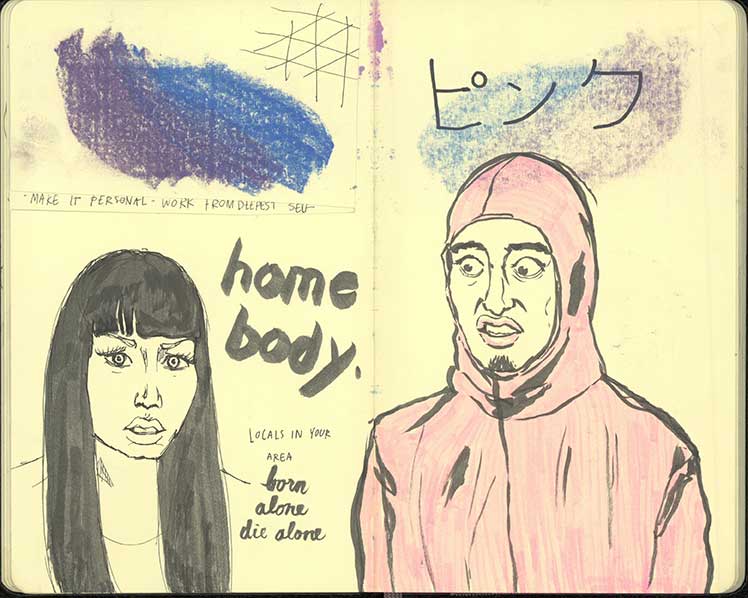 ·MAKE IT PERSONAL· WORK FROM DEEPEST SELF
home
body.
LOCALS IN YOUR
AREA
born
alone
die alone
ピンク